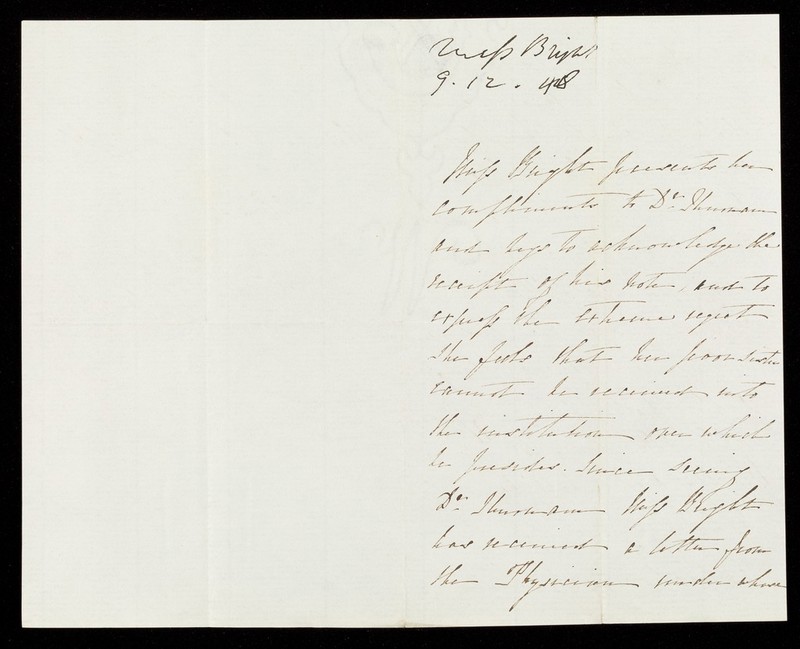 Miss Bright
9.12.48
Miss Bright presents her
compliments to Dr. Thurnam
and begs to acknowledge the
receipt of his note, and to
express the extreme regret
she feels that her poor sister
cannot be received into
the institution over which
he presides. Since seeing
Dr. Thurnam Miss Bright
has received a letter from
the Physician under whose